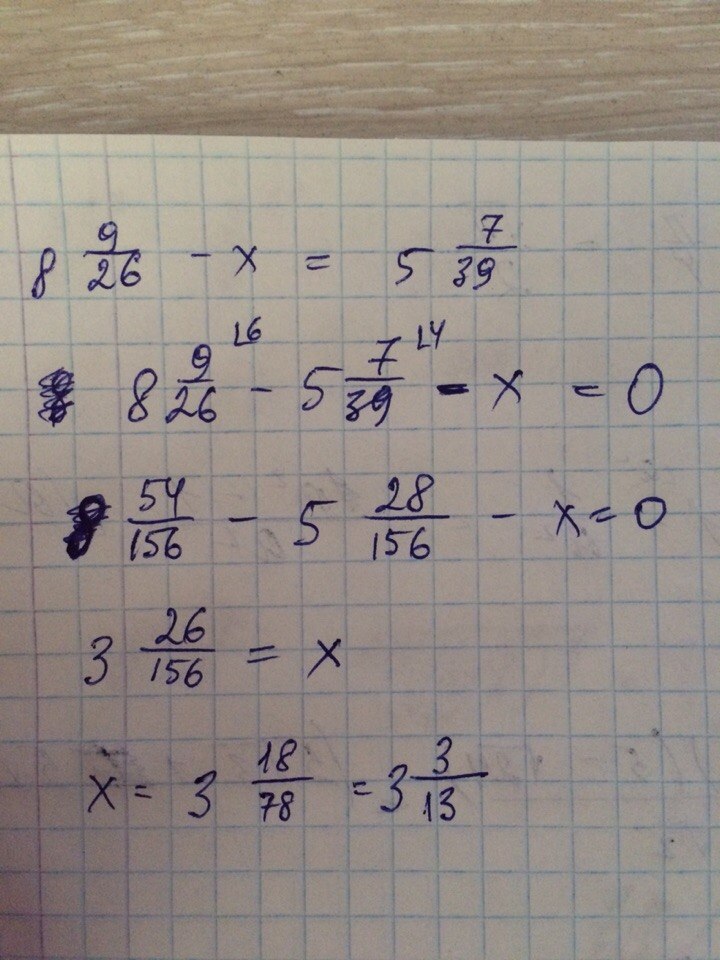 8 9/26 - x = 5 7/39
8 9/26 ⌊6 - 5 7/39 ⌊4 - x = 0
8 54/156 - 5 28/156 - x = 0
3 26/156 = x
x = 3 18/78 = 3 3/13